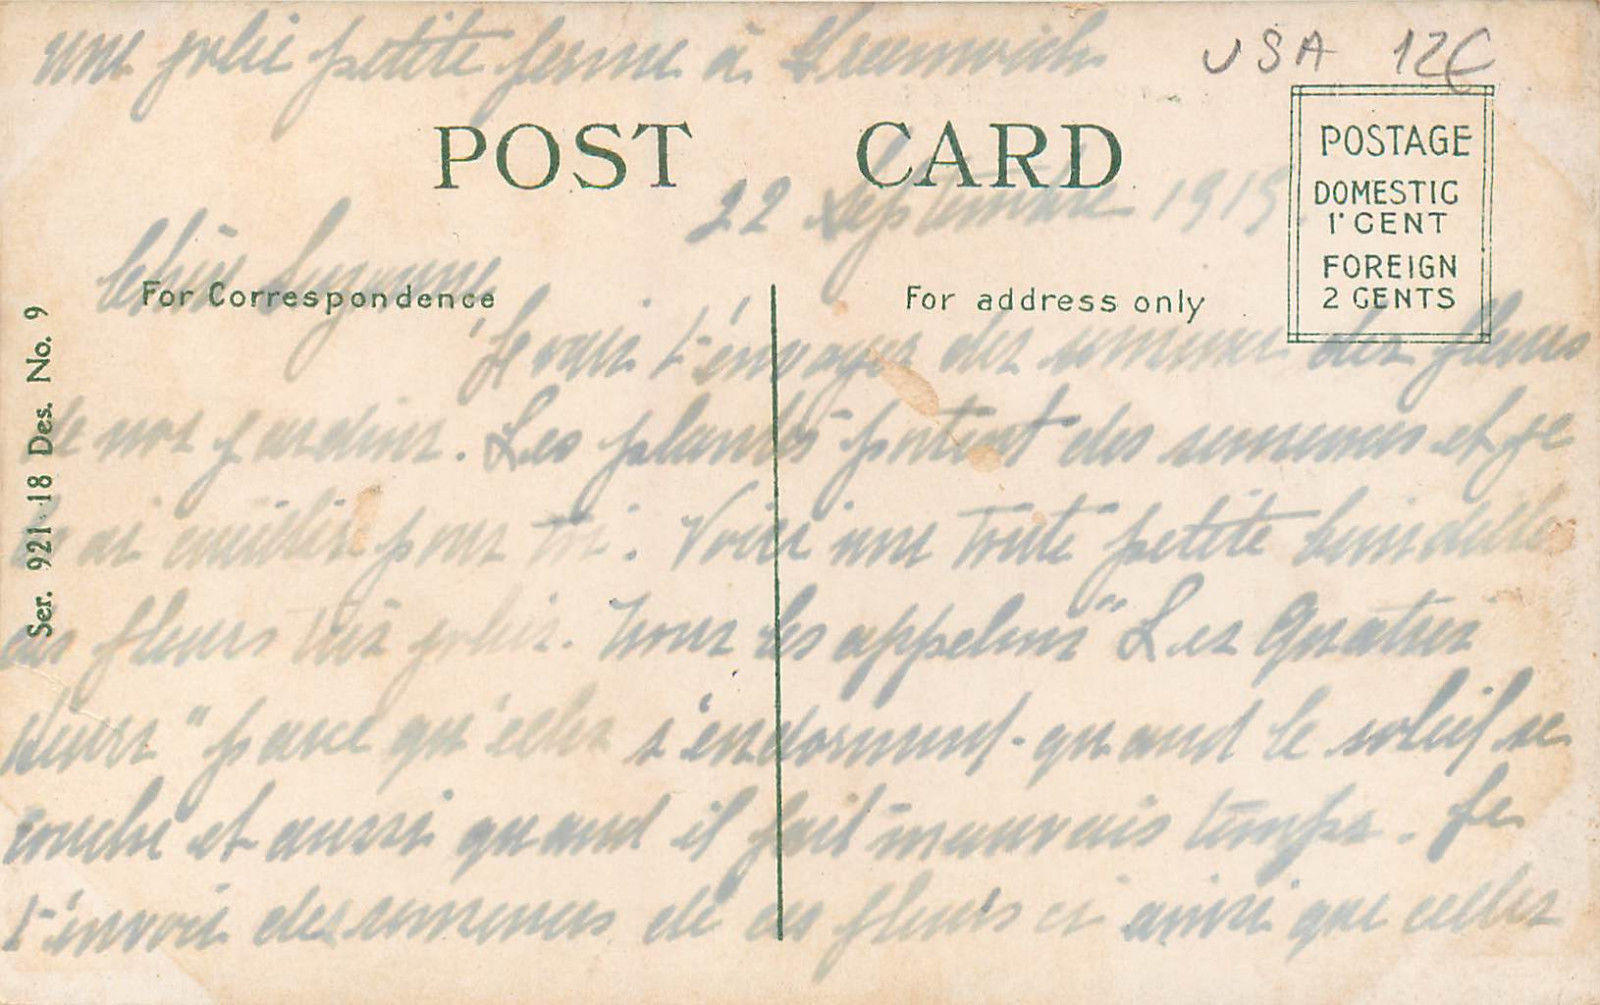 une jolie petite ferme à Greenwich
USA 12€
POST CARD
22 Septembre 1919.
POSTAGE
DOMESTIC
1 CENT
FOREIGN
2 CENTS
Chère Suzanne,
For Correspondence
For address only
Je vais t'envoyer des semences des fleurs
de nos jardins. Les plantes portent des semences et je
ai cueillies pour toi. Voici une toute petite
des fleurs très jolies. Nous les appelons "Les Quatres
heures" parce qu'elles s'endorment quand le soleil se
couche et aussi quand il fait mauvais temps. Je
t'envoie des semences de ces fleurs ci ainsi que celles
Ser. 921-18 Des. No. 9